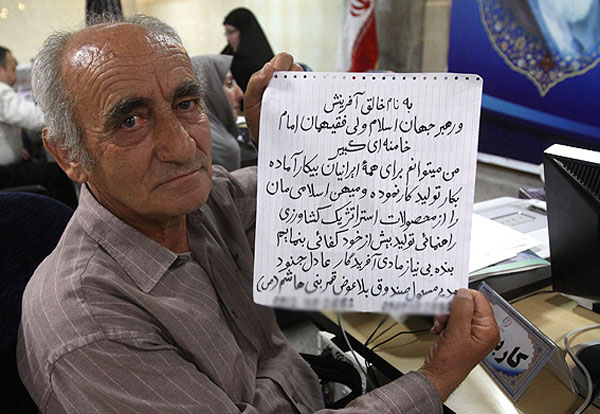 به نام خالق آفرینش
و رهبر جهان اسلام ولی فقیهمان امام
خامنه ای کبیر
من میتوانم برای همهٔ ایرانیان بیکار آماده
بکار تولید کار نموده و میهن اسلامی مان
را از محصولات استراتژیک کشاورزی
راهنمائی تولید بیش از خود کفائی بنمایم
بنده بی نیاز مادی آفریدگار عادل
صندوق بلاعوض قمر بنی هاشم (س)
کاربر